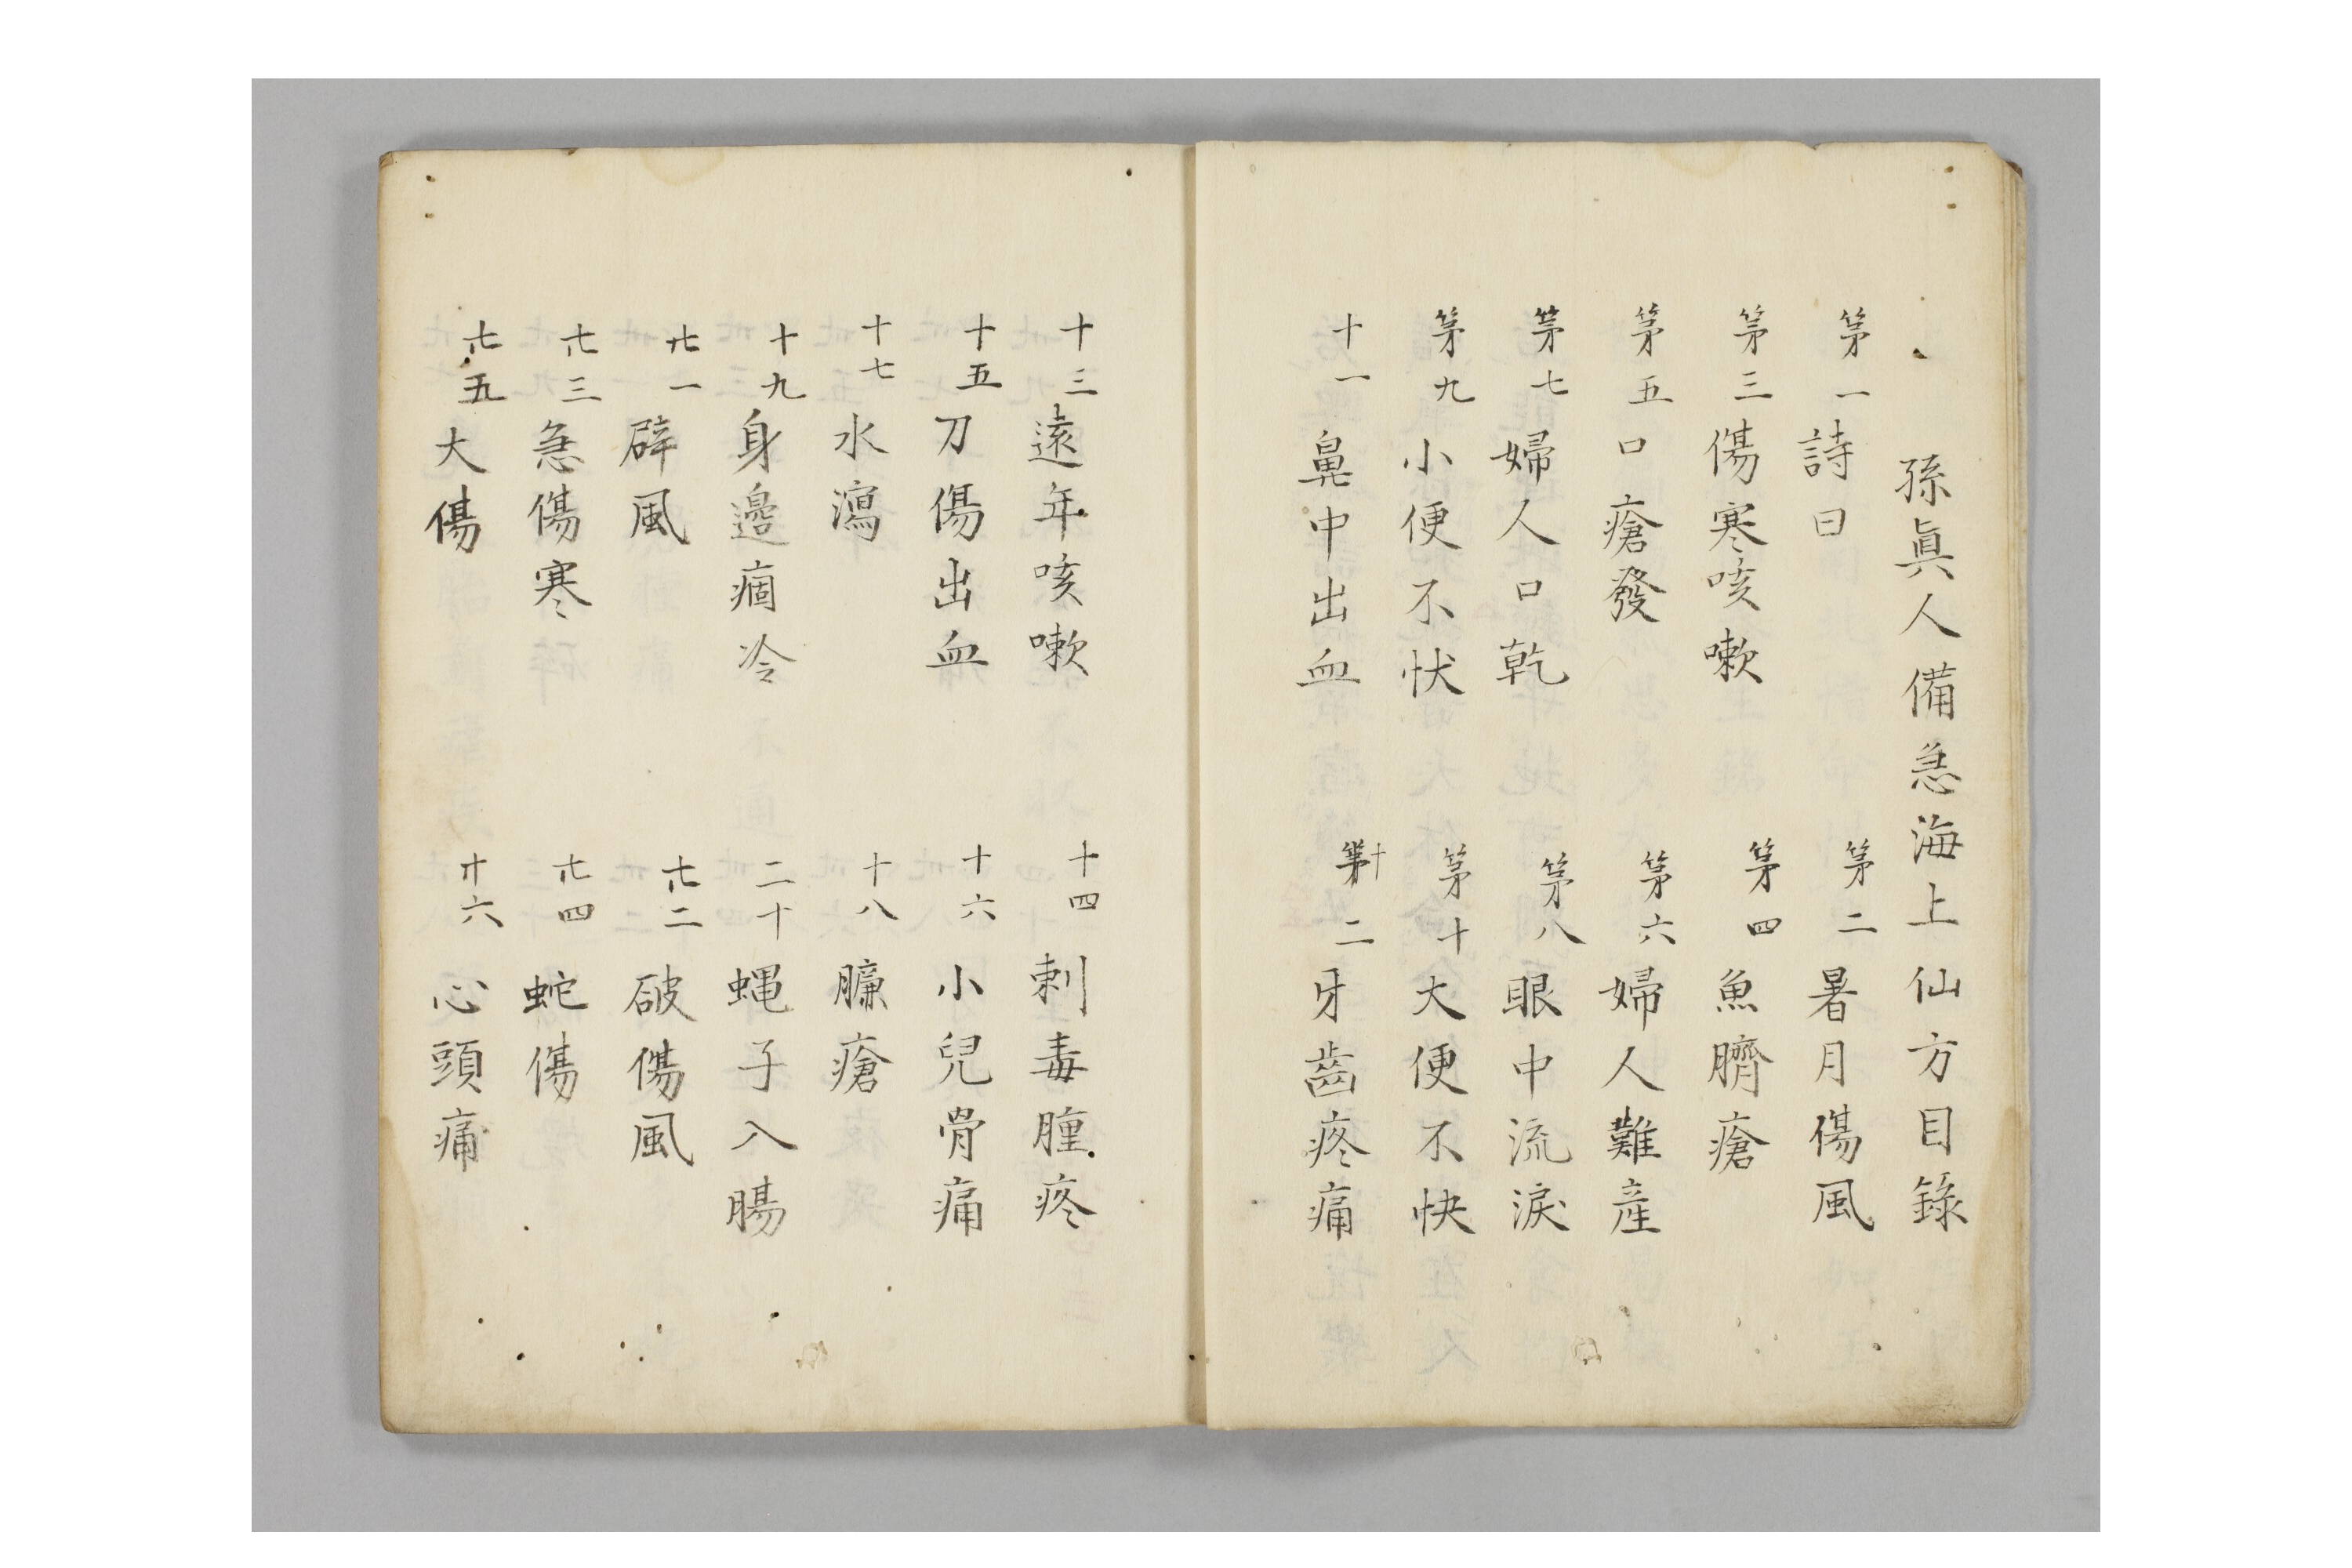 孫眞人備急海上仙方目錄
第一詩曰 第二暑月傷風
第三傷寒咳嗽 第四魚臍瘡
第五口瘡發 第六婦人難產
第七婦人口乾 第八眼中流淚
第九小便不快 第十大便不快
十一鼻中出血 十二牙齒疼痛
十三遠年咳嗽 十四刺毒腫疼
十五刀傷出血 十六小兒骨痛
十七水瀉 十八臁瘡
十九身邊痼冷 二十蝿子入腸
廿一辟風 廿二破傷風
廿三急傷寒 廿四蛇傷
廿五大傷 廿六心頭痛